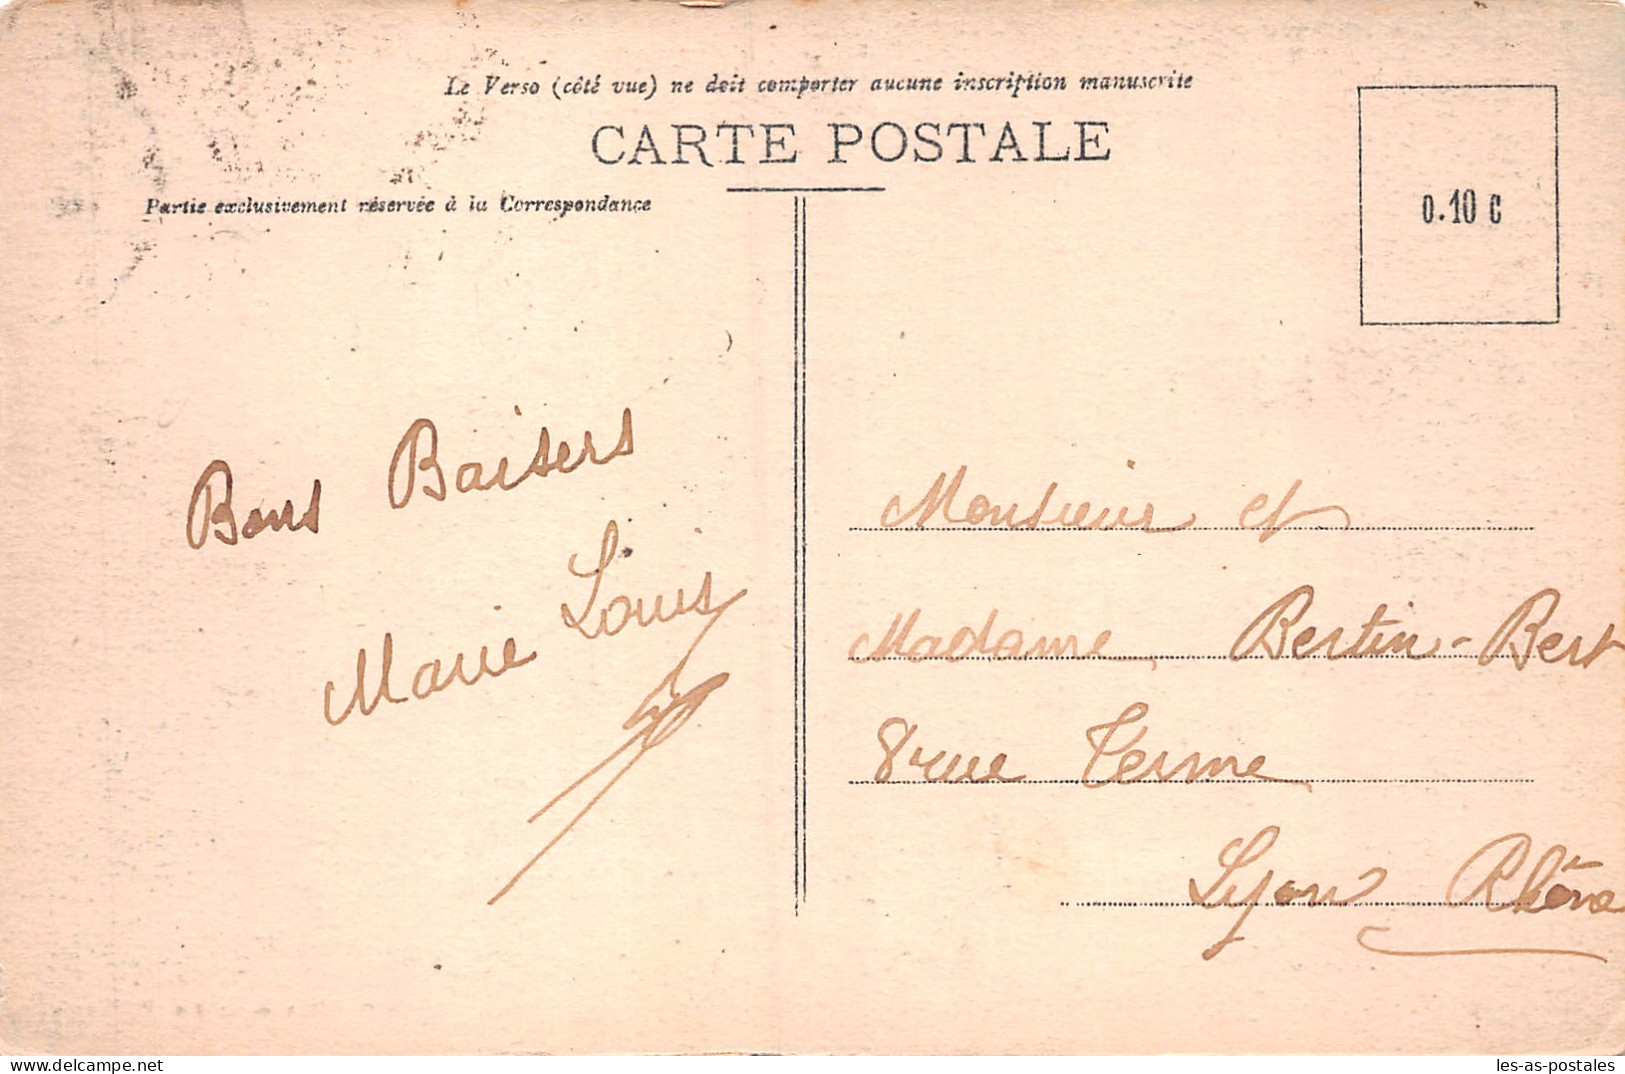 Le Verso (côté vue) ne doit comporter aucune inscription manuscrite
CARTE POSTALE
Partie exclusivement réservée à la Correspondance
0.10 C
Bons Baisers
Marie Louis
Monsieur et
Madame Bertin-Bert
8 rue Terme
Lyon Rhône
delcampe.net
les-as-postales